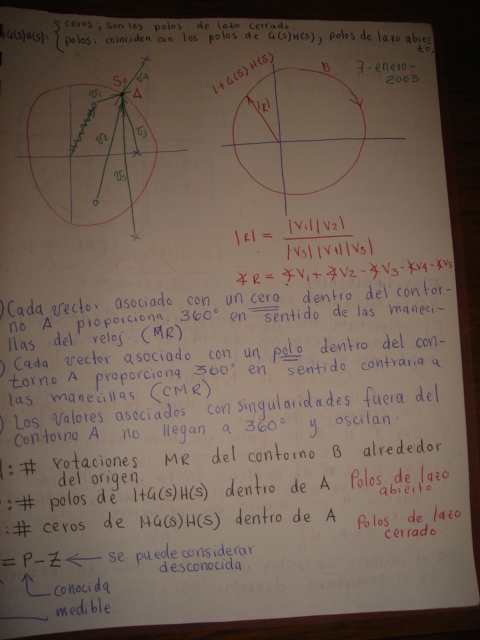 G(S)H(S)= { ceros; son los polos de lazo cerrado
polos. coinciden con los polos de G(S)H(S), polos de lazo abier
to.
7-enero-
2003
1+G(S)H(S)
B
|R|
S₁
A
V₁
V₂
V₃
V₄
V₅
|R| = |V₁||V₂|
|V₃||V₄||V₅|
∡R = ∡V₁ + ∡V₂ - ∡V₃ - ∡V4 - ∡V5
) Cada vector asociado con un cero dentro del contor-
no A proporciona 360° en sentido de las maneci-
llas del reloj (MR)
) Cada vector asociado con un polo dentro del con-
torno A proporciona 360° en sentido contraria a
las manecillas (CMR)
) Los valores asociados con singularidades fuera del
contorno A no llegan a 360° y oscilan.
: # rotaciones MR del contorno B alrededor
del origen.
: # polos de 1+G(S)H(S) dentro de A Polos de lazo
abierto
: # ceros de 1+G(S)H(S) dentro de A Polos de lazo
cerrado.
= P-Z ← se puede considerar
desconocida.
conocida
medible